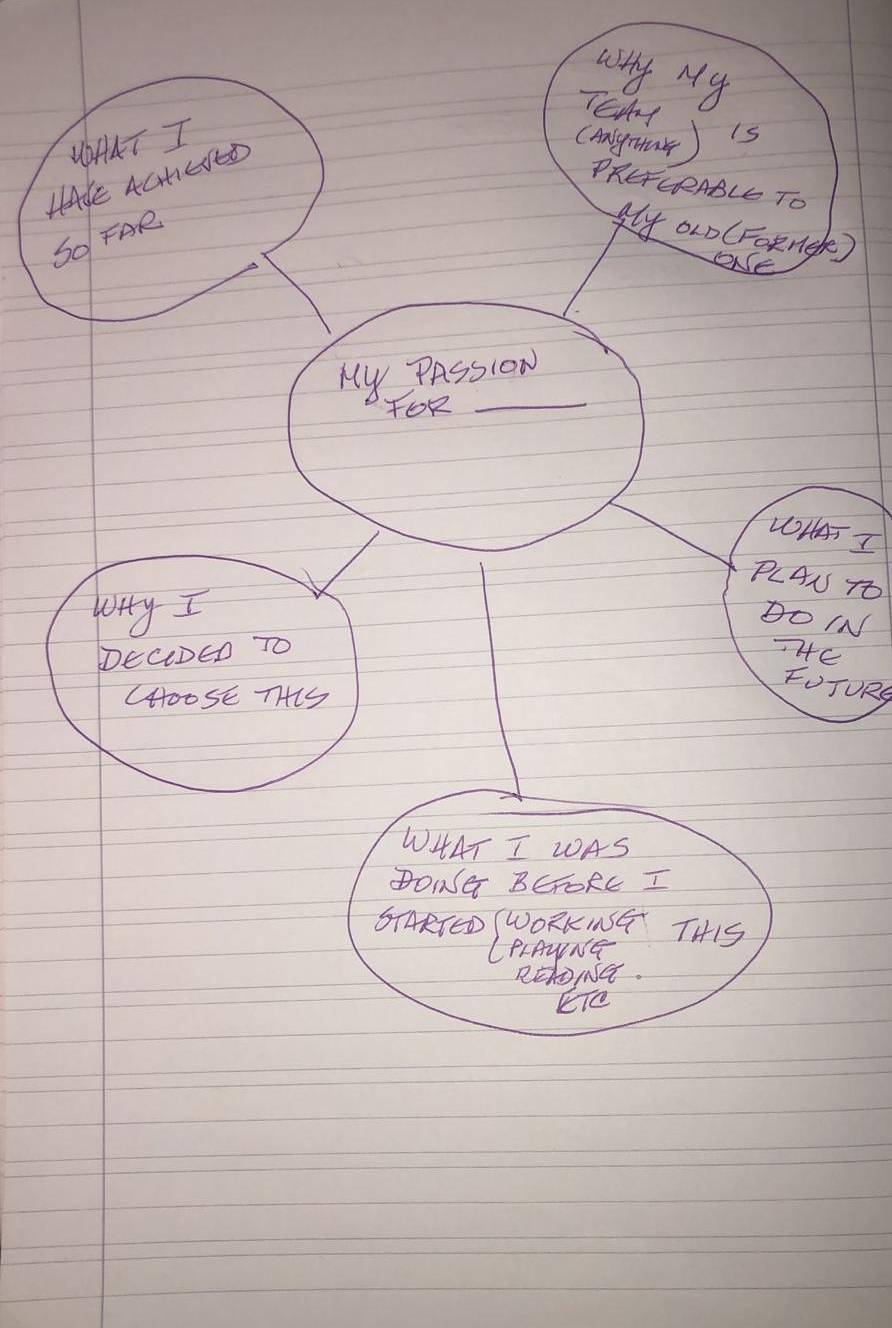 WHAT I
HAVE ACHIEVED
SO FAR
WHY MY
TEAM
(ANYTHING) IS
PREFERABLE TO
MY OLD (FORMER)
ONE
MY PASSION
FOR ______
WHY I
DECIDED TO
CHOOSE THIS
WHAT I
PLAN TO
DO IN
THE
FUTURE
WHAT I WAS
DOING BEFORE I
STARTED (WORKING THIS
(PLAYING
READING.
ETC